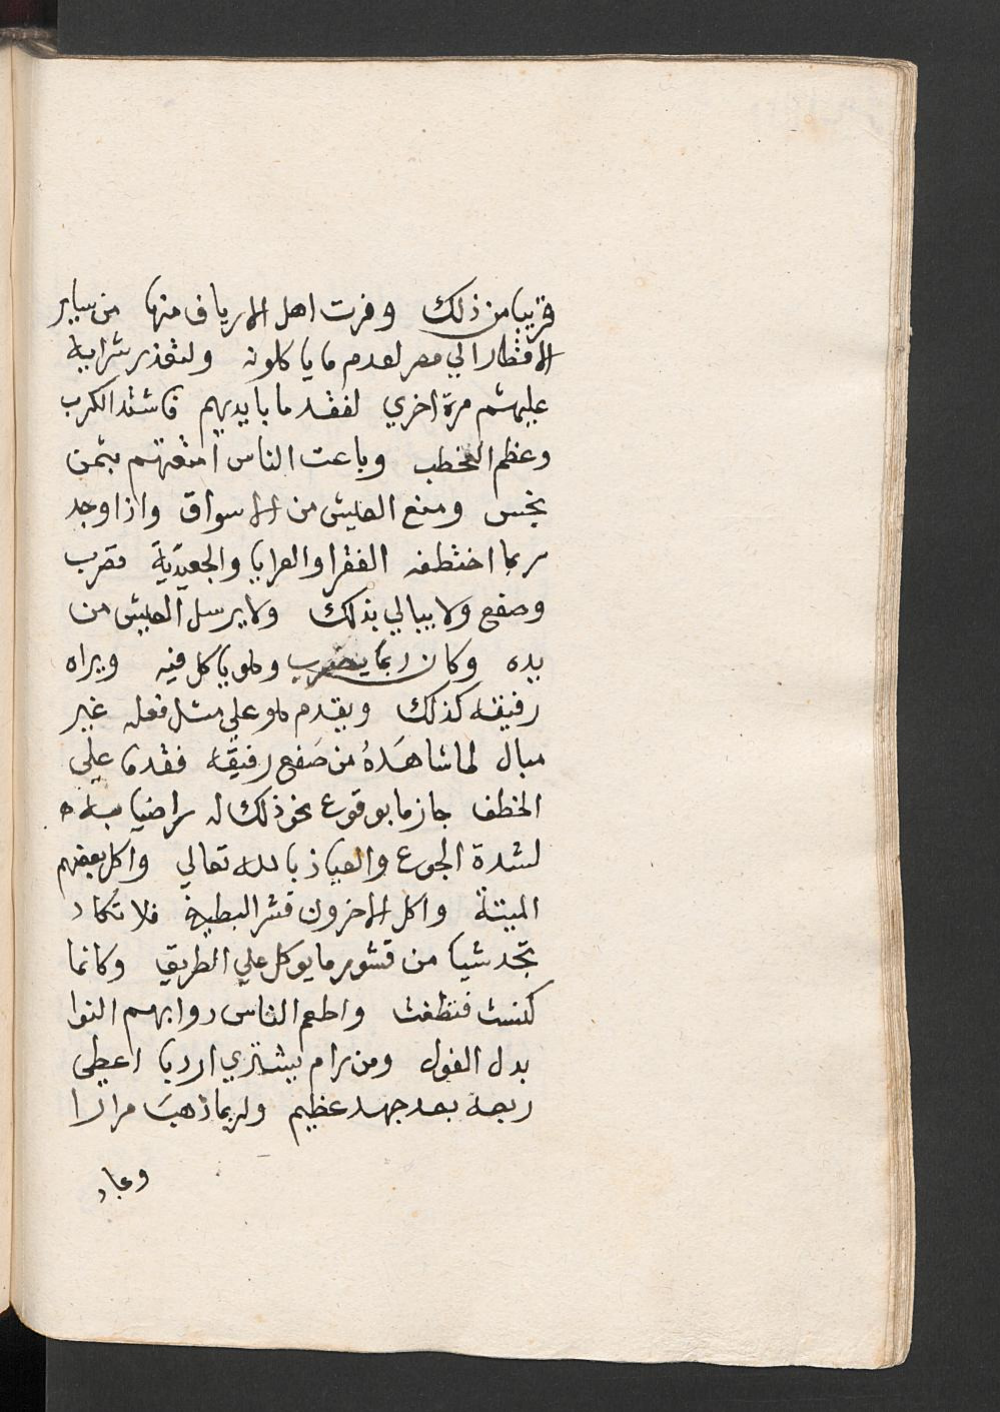 قريبا من ذلك وفرت اهل الارياف منها من ساير
الاقطار الي مصر لعدم ما ياكلونه ولتعذر شرابيه
عليهم مرة اخري لفقد ما بايديهم فاشتد الكرب
وعظم الخطب وباعت الناس امتعتهم بثمن
بخس ومنع العيش من الاسواق واذا وجد
ربما اختطفه الفقرا والعرايا والجعيدية فضرب
وصفع ولا يبالي بذلك ولا يرسل العيش من
يده وكان ربما يضرب وهو ياكل فيه ويراه
رفيقه كذلك ويقدم هو علي مثل فعله غير
مبال لما شاهَدهُ من صَفع رفيقه فقدم علي
الخطف جازما بوقوع نحو ذلك له راضيا به
لشدة الجوع والعياذ بالله تعالي واكل بعضهم
الميتة واكل الاخرون قشر البطيخ فلا تكاد
تجد شيا من قشور ما يوكل علي الطريق وكانما
كنست فنظفت واطعم الناس دوابهم النوا
بدل الفول ومن رام يشتري اردبا اعطي
ربعه بعد جهد عظيم ولربما ذهبَ مرارا
وعاد